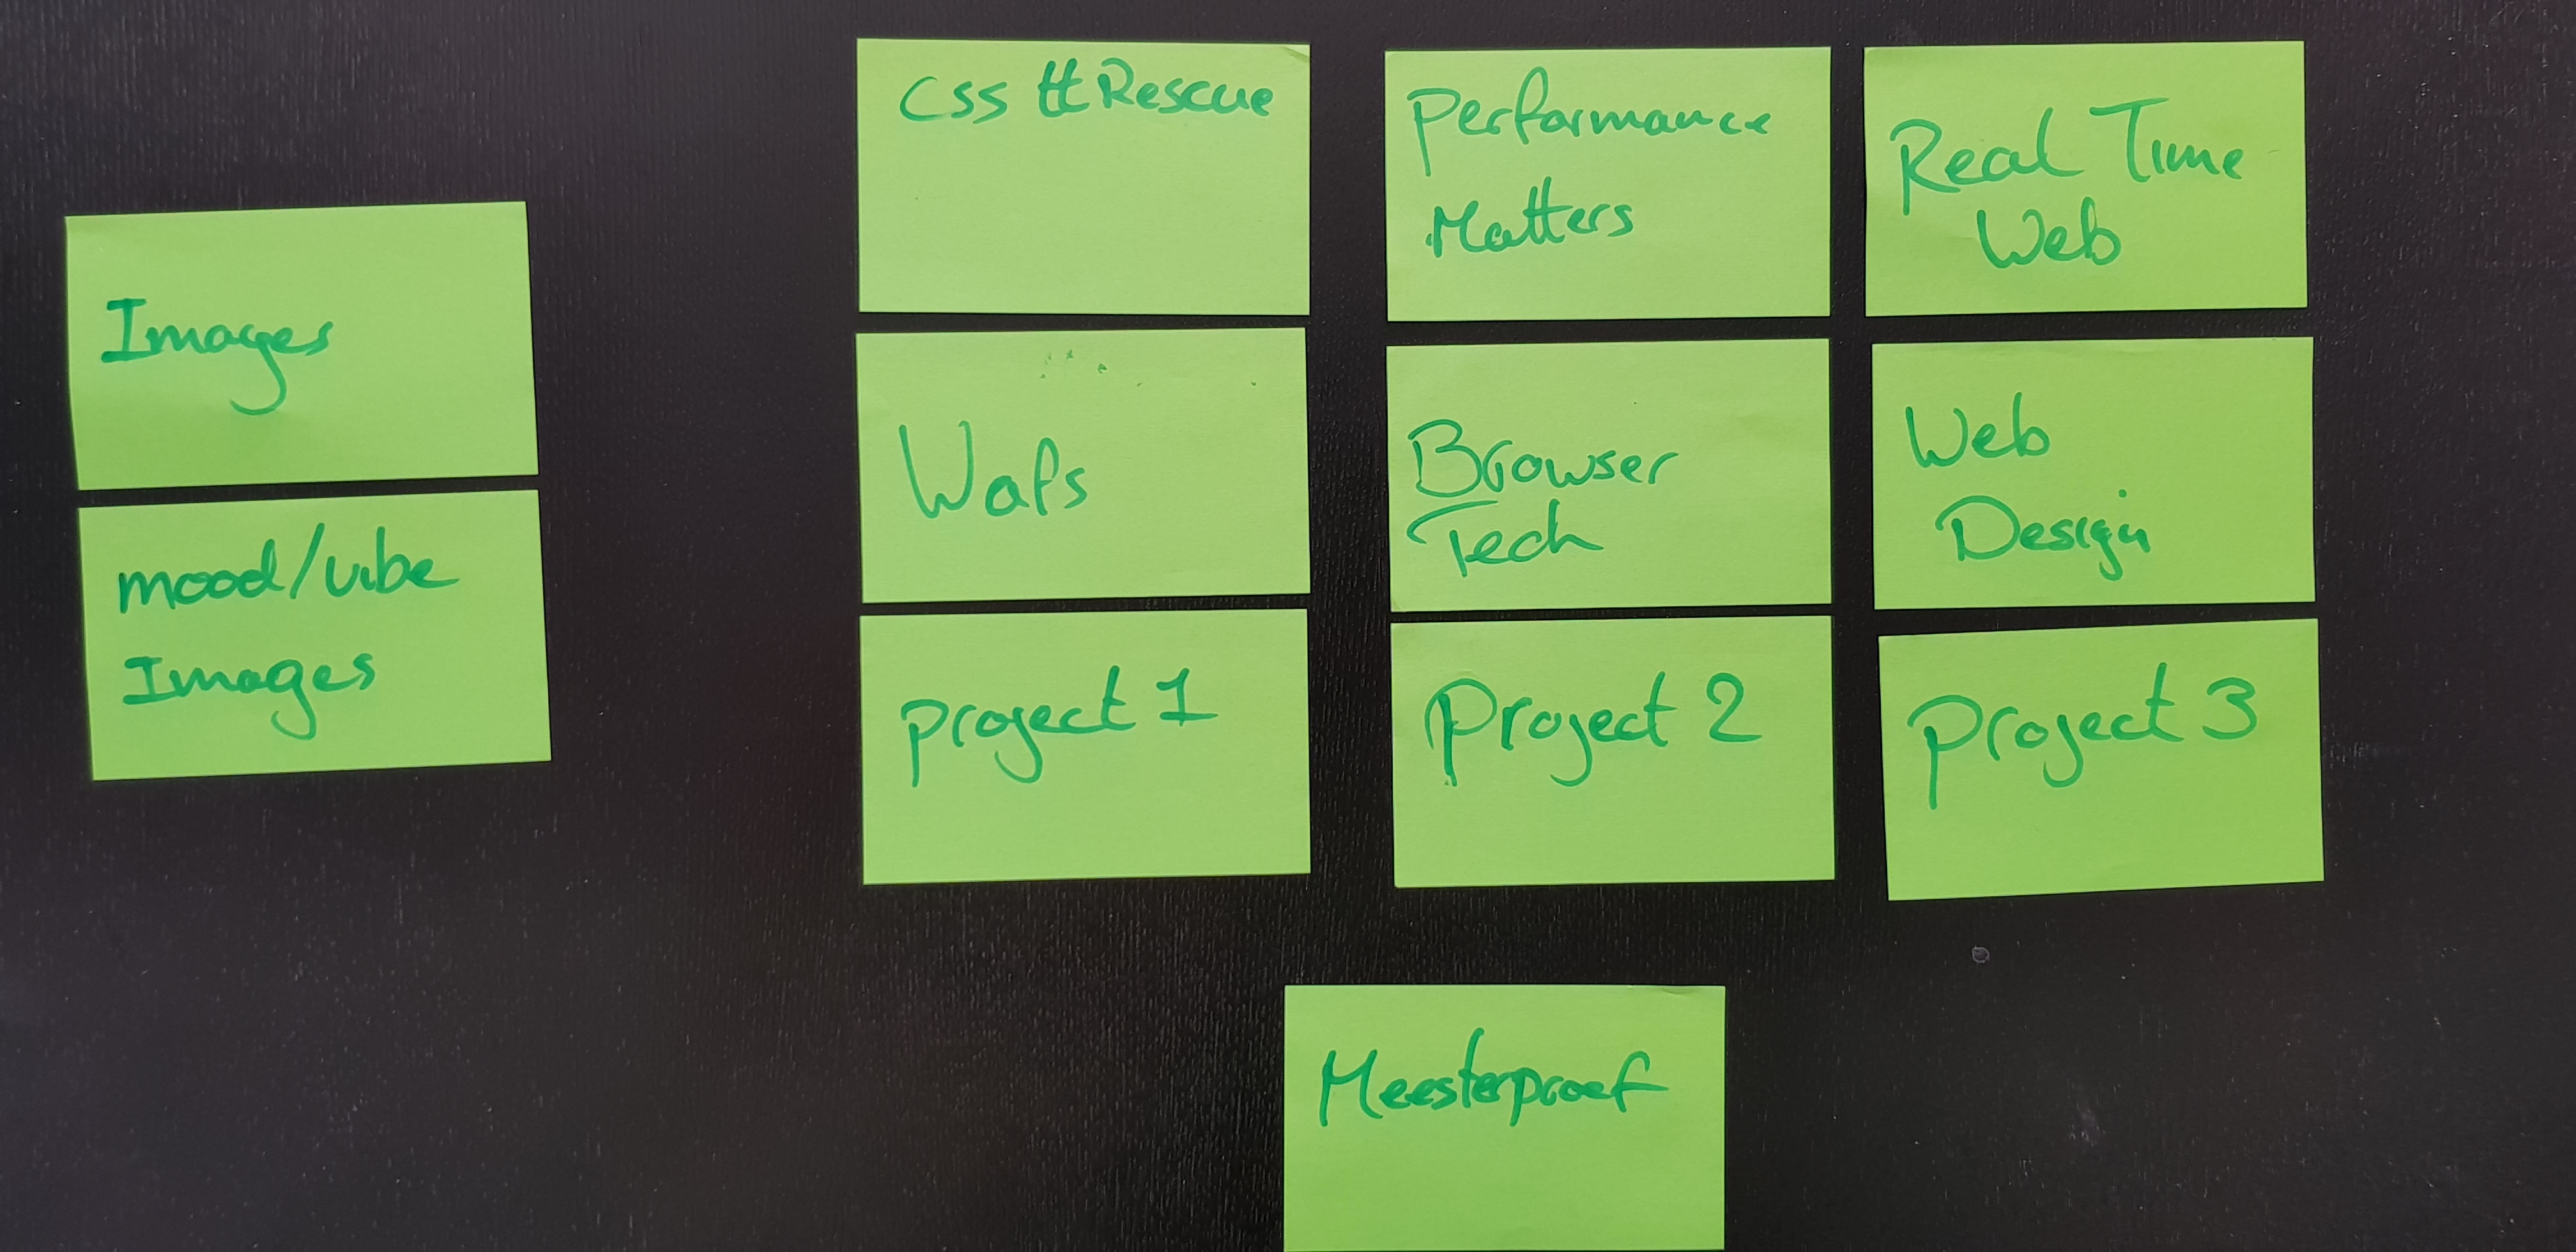 Images
mood/vibe
Images
Css ttRescue
Wafs
project 1
Performance
Matters
Browser
Tech
Project 2
Real Time
Web
Web
Design
Project 3
Meesterproef